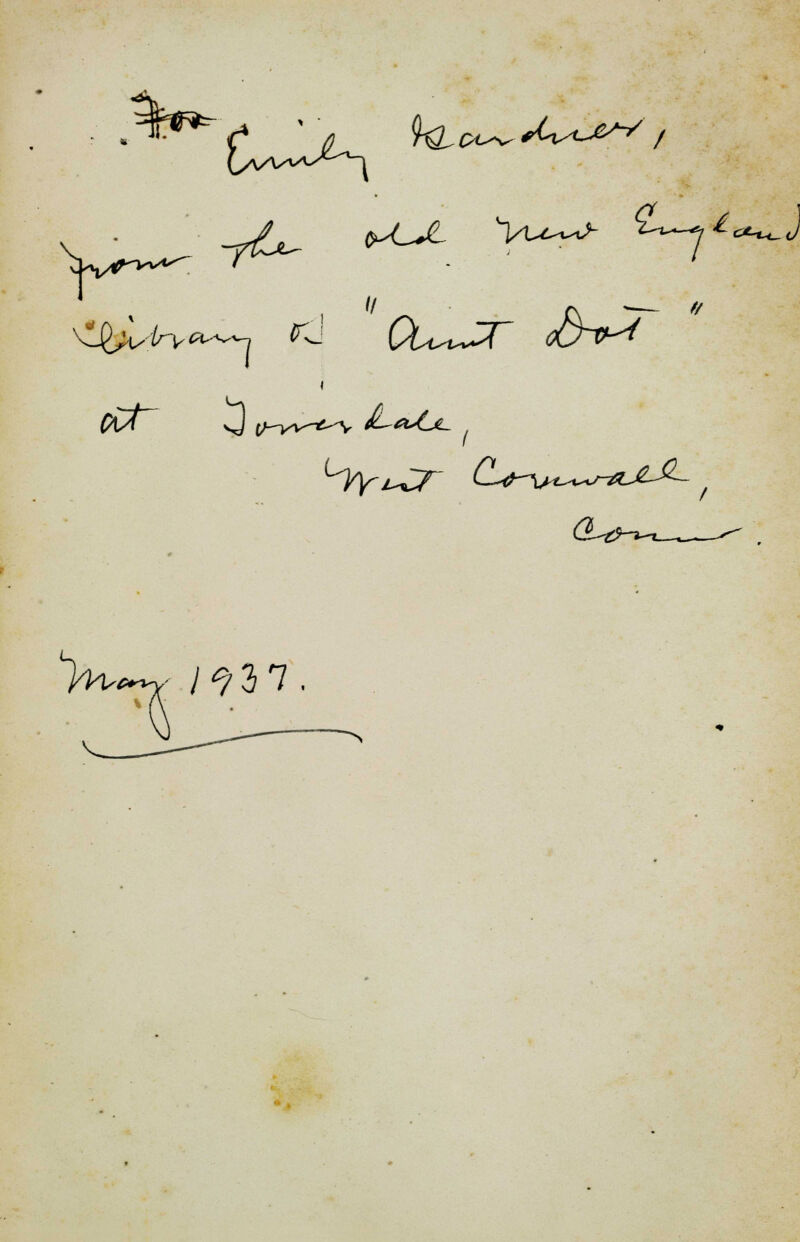 For
Emily Gardner,
from the old New England
Library of "Aunt Dot"
at Towerdale,
West Cornwall,
Conn.
May 1937.